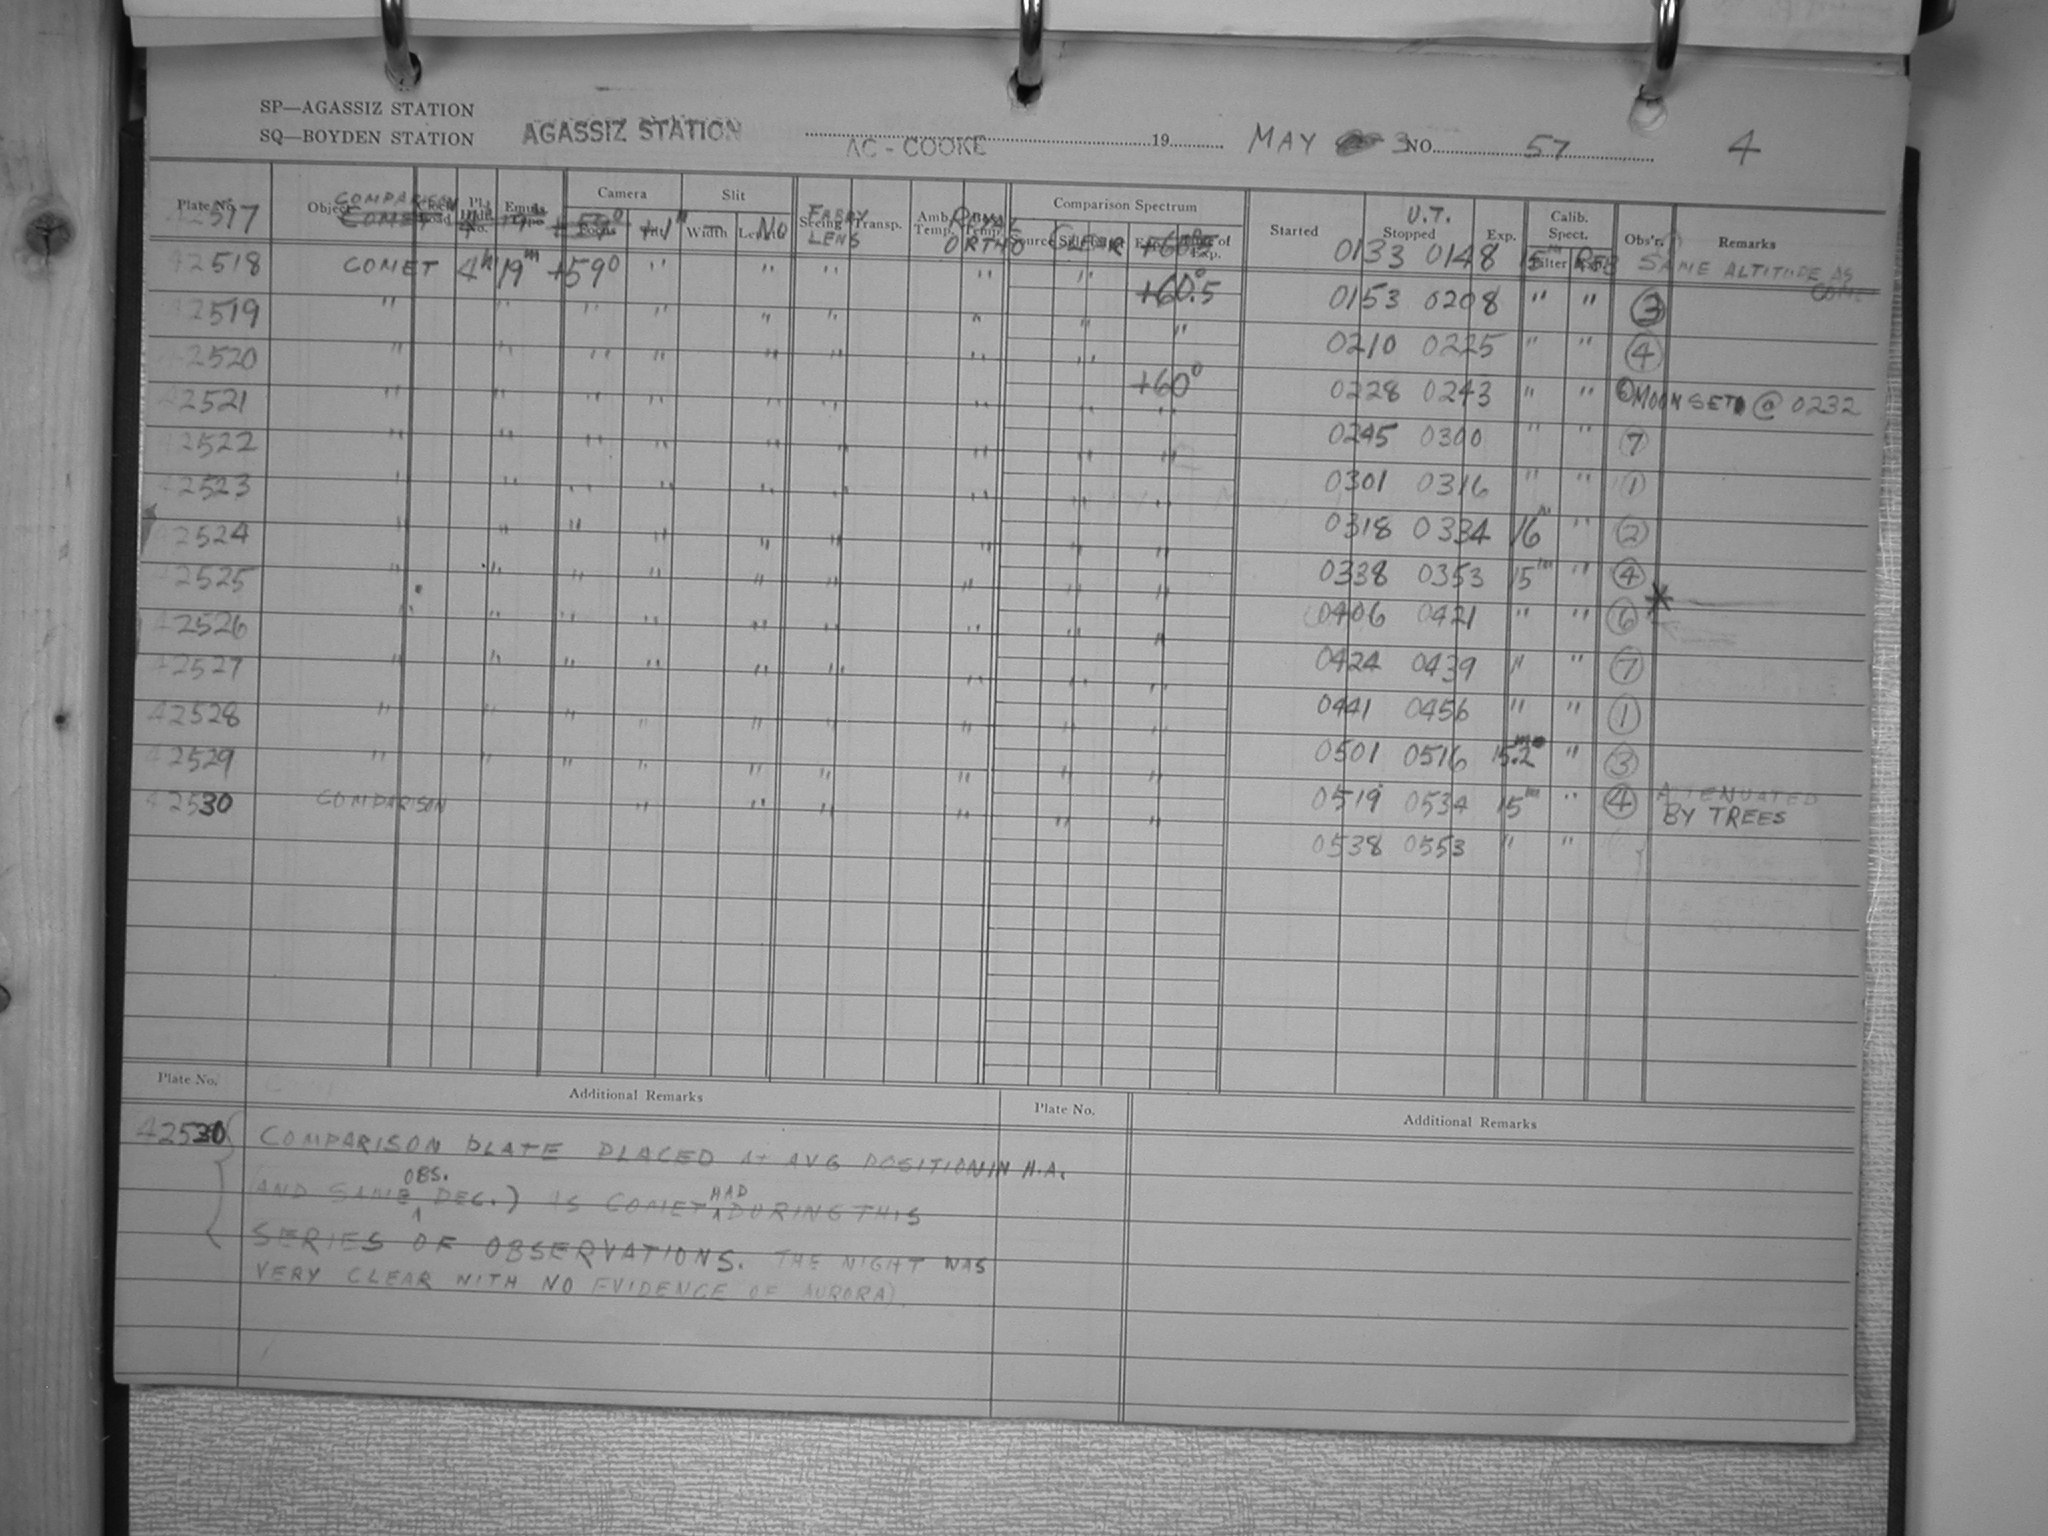 SP—AGASSIZ STATION
SQ—BOYDEN STATION
AGASSIZ STATION
AC - COOKE
19
MAY 3
NO. 57
4
Plate No.
Object
Camera
Slit
Seeing
Transp.
Amb. Temp.
Comparison Spectrum
Started
U.T. Stopped
Exp.
Calib. Spect.
Obs'r.
Remarks
Focus
Width
No
FABRY LENS
ORTHO
CLEAR
42517 COMPARISON 0133 0148 15m SAME ALTITUDE AS COM.
42518 COMET 4h 19m +59° " " " " " +60.5° 0153 0208 " " ③
42519 " " " " " " " " " 0210 0225 " " ④
42520 " " " " " " " " +60° 0228 0243 " " ⑥ MOON SET @ 0232
42521 " " " " " " " " " 0245 0300 " " ⑦
42522 " " " " " " " " " 0301 0316 " " ①
42523 " " " " " " " " " 0318 0334 16m " ②
42524 " " " " " " " " " 0338 0353 15m " ④
42525 " " " " " " " " " 0406 0421 " " ⑥ *
42526 " " " " " " " " " 0424 0439 " " ⑦
42527 " " " " " " " " " 0441 0456 " " ①
42528 " " " " " " " " " 0501 0516 15.2m " ③
42529 " " " " " " " " " 0519 0534 15m " ④ ATTENUATED
BY TREES
42530 COMPARISON " " " " " " 0538 0553 " "
Plate No.
Additional Remarks
Plate No.
Additional Remarks
42530 COMPARISON PLATE PLACED AT AVG POSITION IN H.A.
(AND SAME OBS. DEC.) AS COMET HAD DURING THIS
SERIES OF OBSERVATIONS. THE NIGHT WAS
VERY CLEAR WITH NO EVIDENCE OF AURORA)